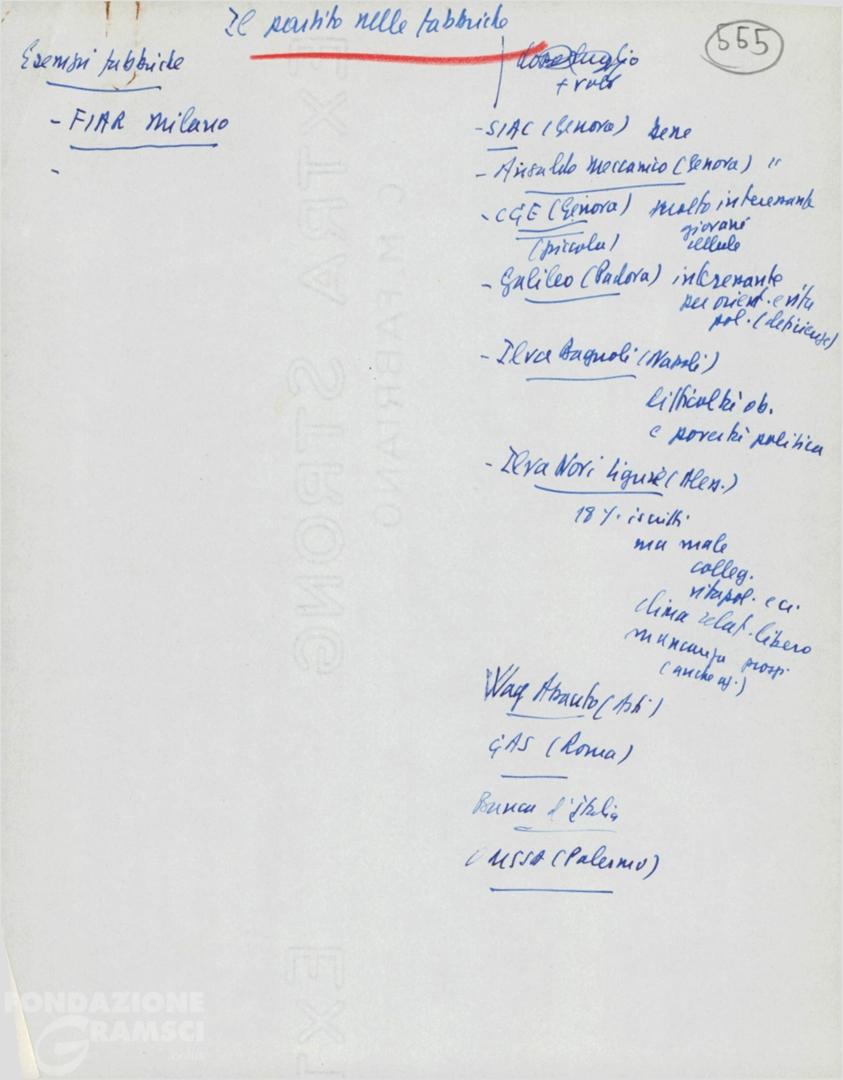 Il partito nelle fabbriche
555
Esempi fabbriche
- FIAR Milano
-
luglio
- SIAC (Genova) bene
- Ansaldo Meccanico (Genova) "
- CGE (Genova) molto interessante
giovani
(piccola) cellule
- Galileo (Padova) interessante
per orient. e vita
pol. (deficienze)
- Ilva Bagnoli (Napoli)
difficoltà ob.
e povertà politica
- Ilva Novi Ligure (Aless.)
18%. iscritti
ma male
colleg.
vita pol. e ci.
clima relat. libero
mancanza prosp.
(anche az.)
Way Assauto (Asti)
GAS (Roma)
Banca d'Italia
OMSSA (Palermo)
EXTRA STRONG
C.M. FABRIANO
EXT
FONDAZIONE
GRAMSCI